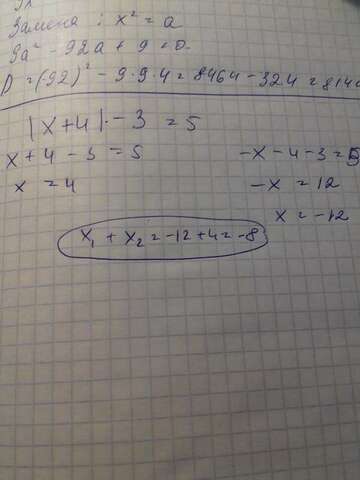 Замена: x² = a
9a² - 92a + 9 = 0.
D = (92)² - 9·9·4 = 8464 - 324 = 8140
|x+4| - 3 = 5
x + 4 - 3 = 5 -x - 4 - 3 = 5
x = 4 -x = 12
x = -12
x₁ + x₂ = -12 + 4 = -8